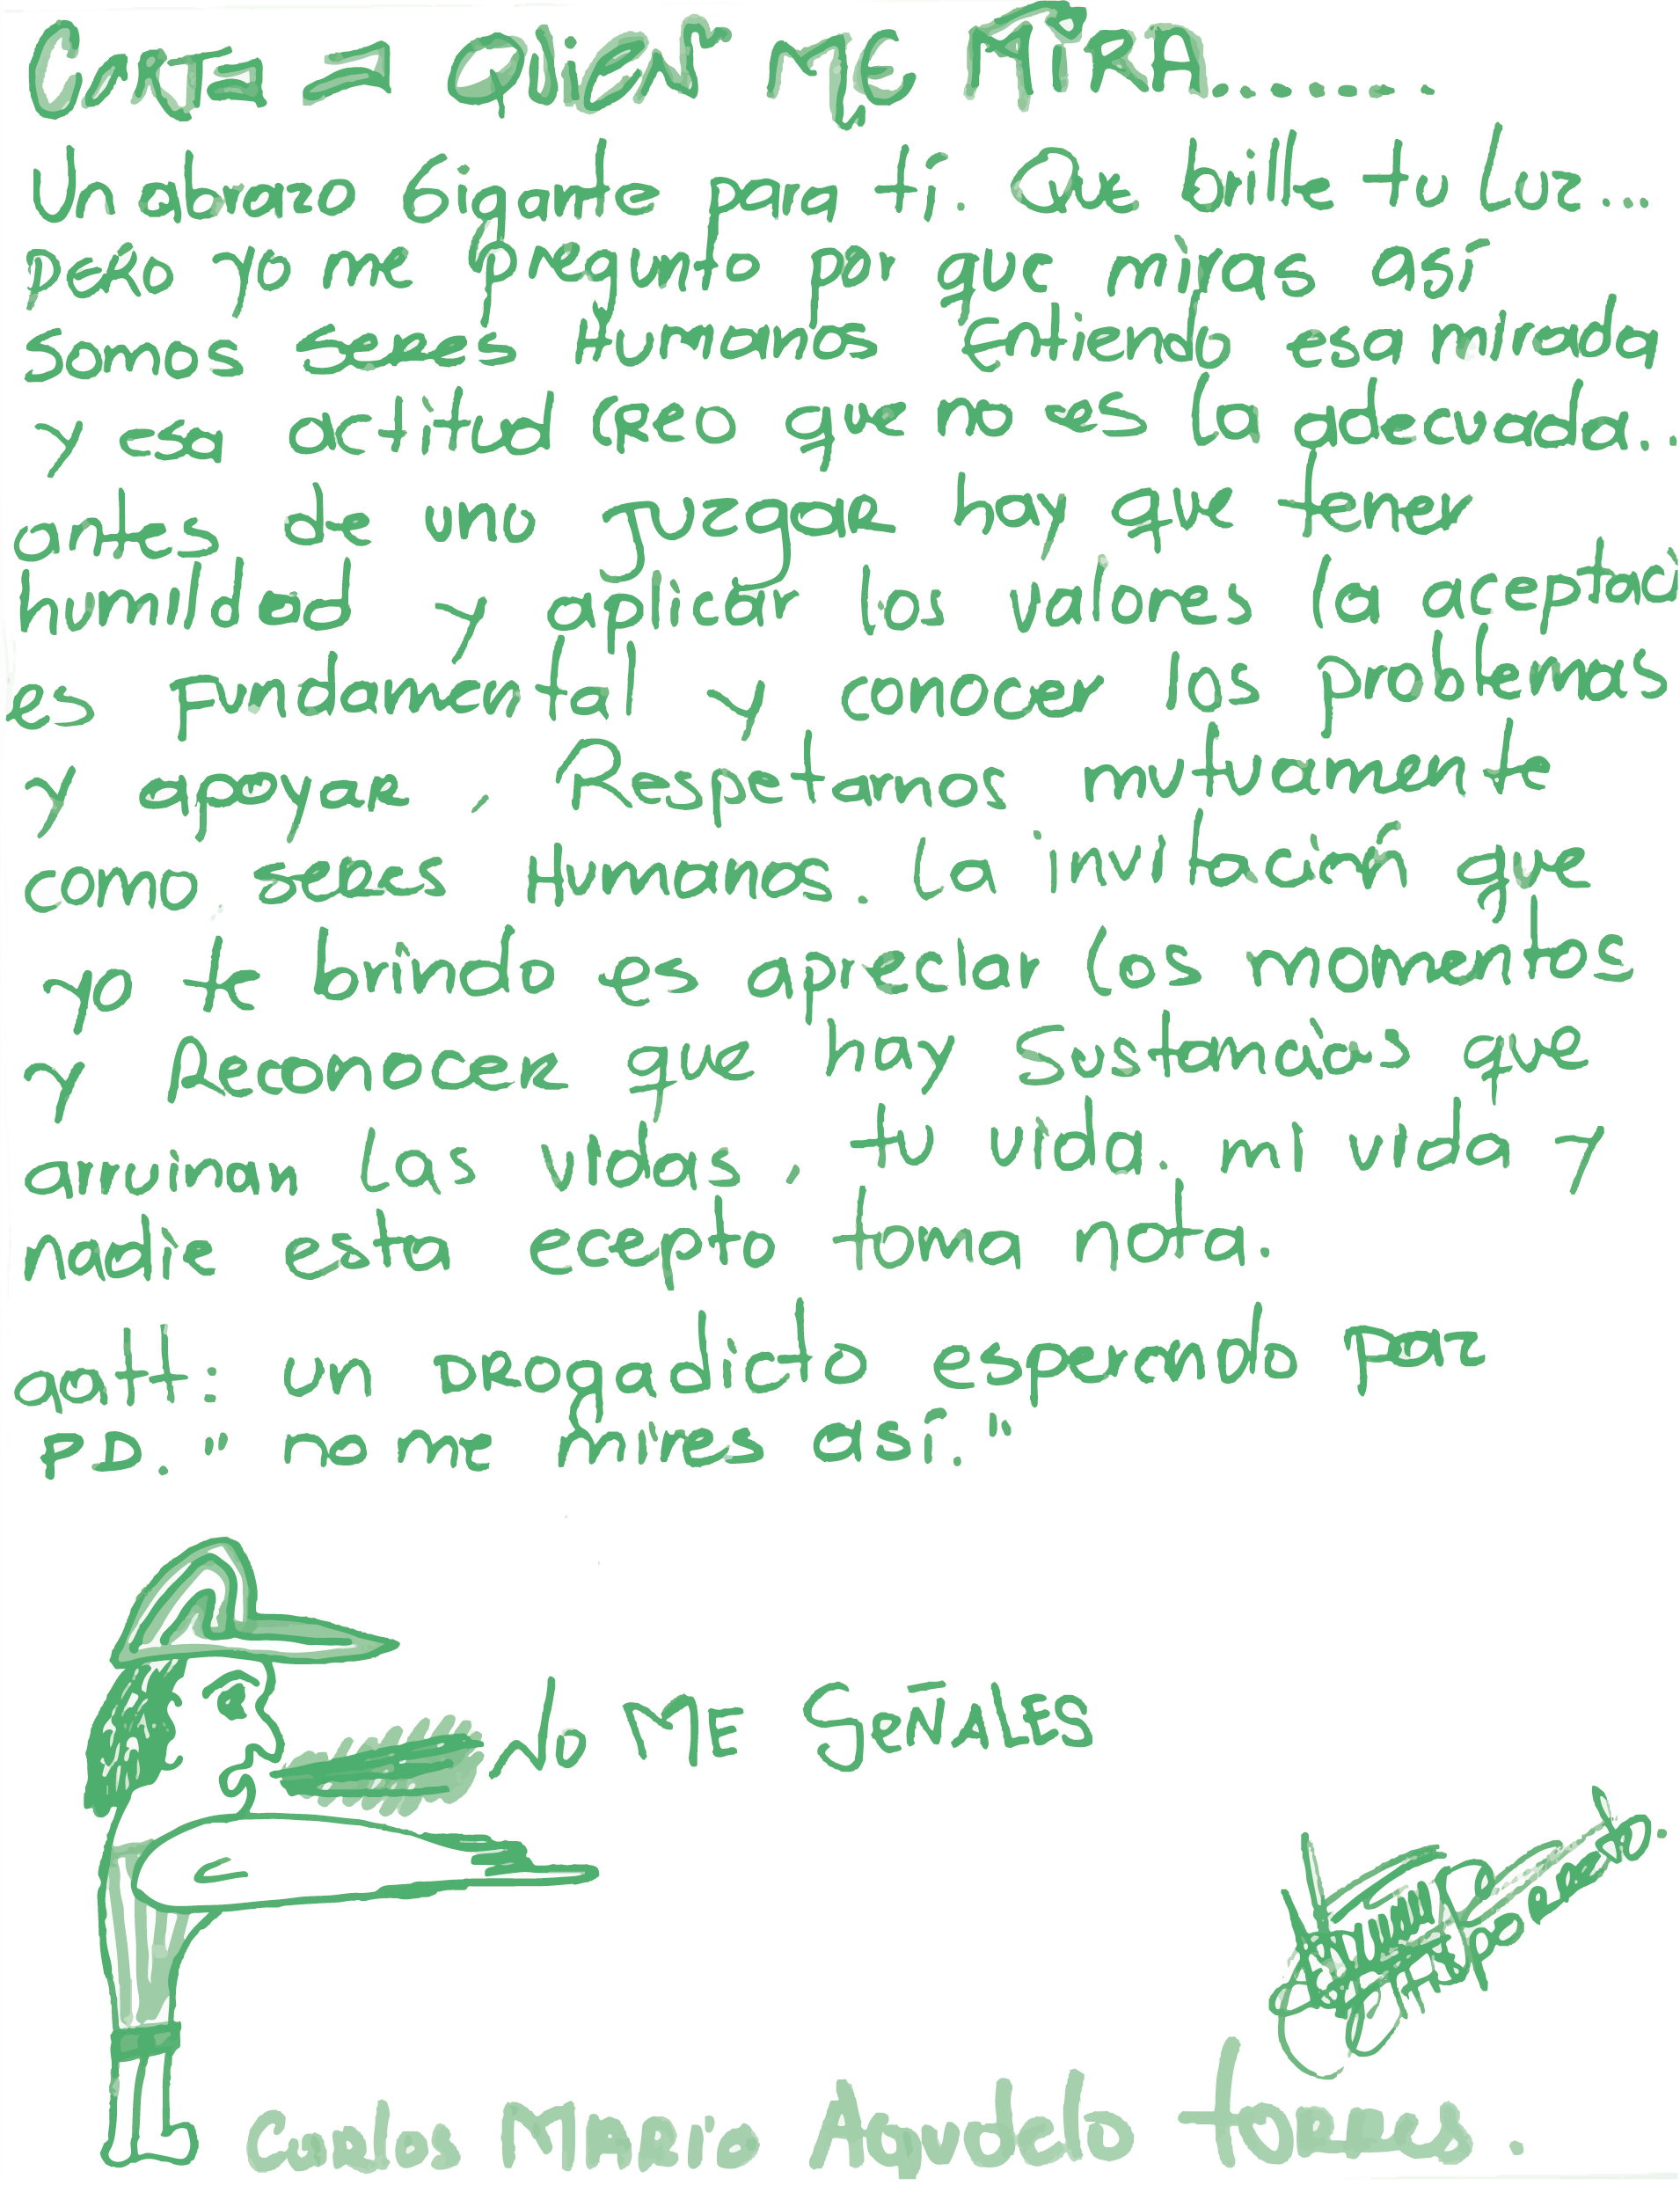 CARTA A QUIEN ME MIRA.........
Un abrazo Gigante para ti. Que brille tu Luz...
pero yo me pregunto por que miras así
somos seres Humanos Entiendo esa mirada
y esa actitud creo que no es la adecuada..
antes de uno juzgar hay que tener
humildad y aplicar los valores la aceptaci
es fundamental y conocer los problemas
y apoyar, Respetarnos mutuamente
como seres Humanos. La invitación que
yo te brindo es apreciar los momentos
y Reconocer que hay Sustancias que
arruinan las vidas, tu vida. mi vida y
nadie esta ecepto toma nota.
att: un DROgadicto esperando paz
PD. "no me mires así."
NO ME SEÑALES
CARLOS MARIO Agudelo torres.